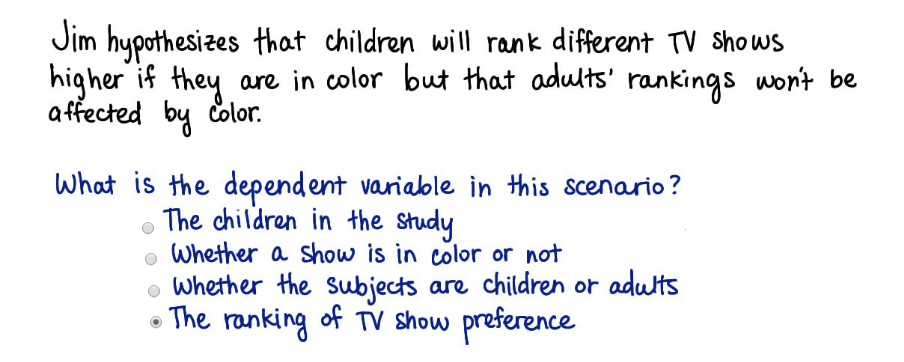 Jim hypothesizes that children will rank different TV shows
higher if they are in color but that adults' rankings won't be
affected by color.
What is the dependent variable in this scenario?
The children in the study
Whether a show is in color or not
Whether the subjects are children or adults
The ranking of TV show preference